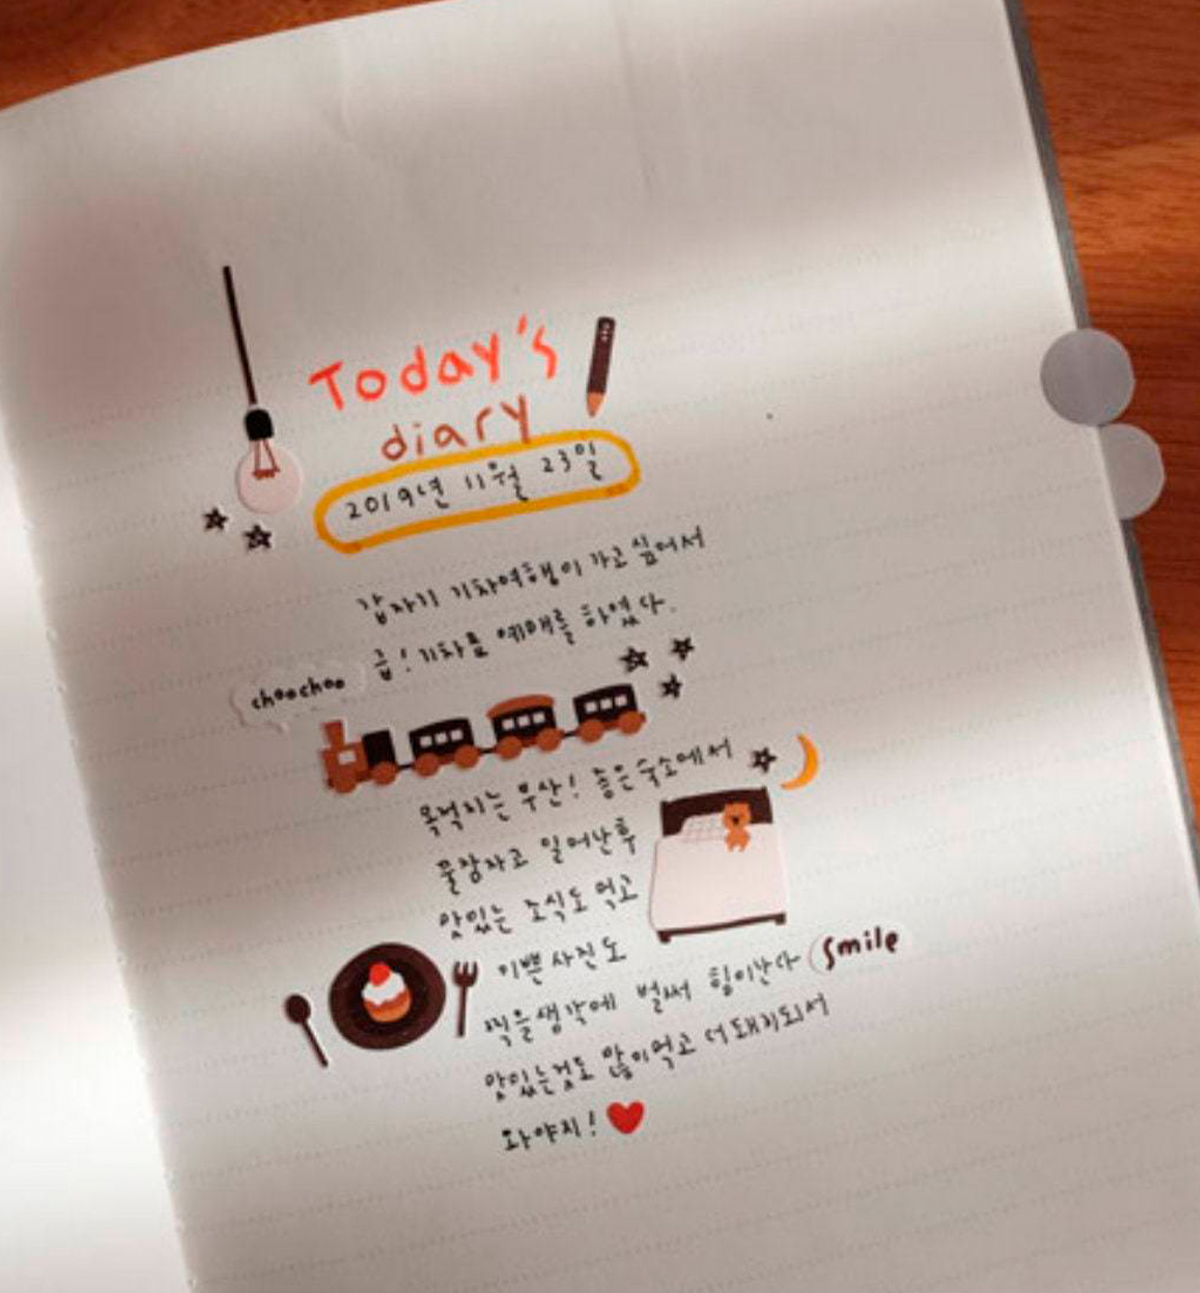 Today's
diary
2019년 11월 23일
갑자기 기차여행이 가고 싶어서
급! 기차표 예매를 하였다.
choochoo
목적지는 부산! 좋은 숙소에서
꿀잠자고 일어난후
맛있는 조식도 먹고
이쁜 사진도
찍을생각에 벌써 힘이난다 smile
맛있는것도 많이먹고 더돼지되서
와야지!